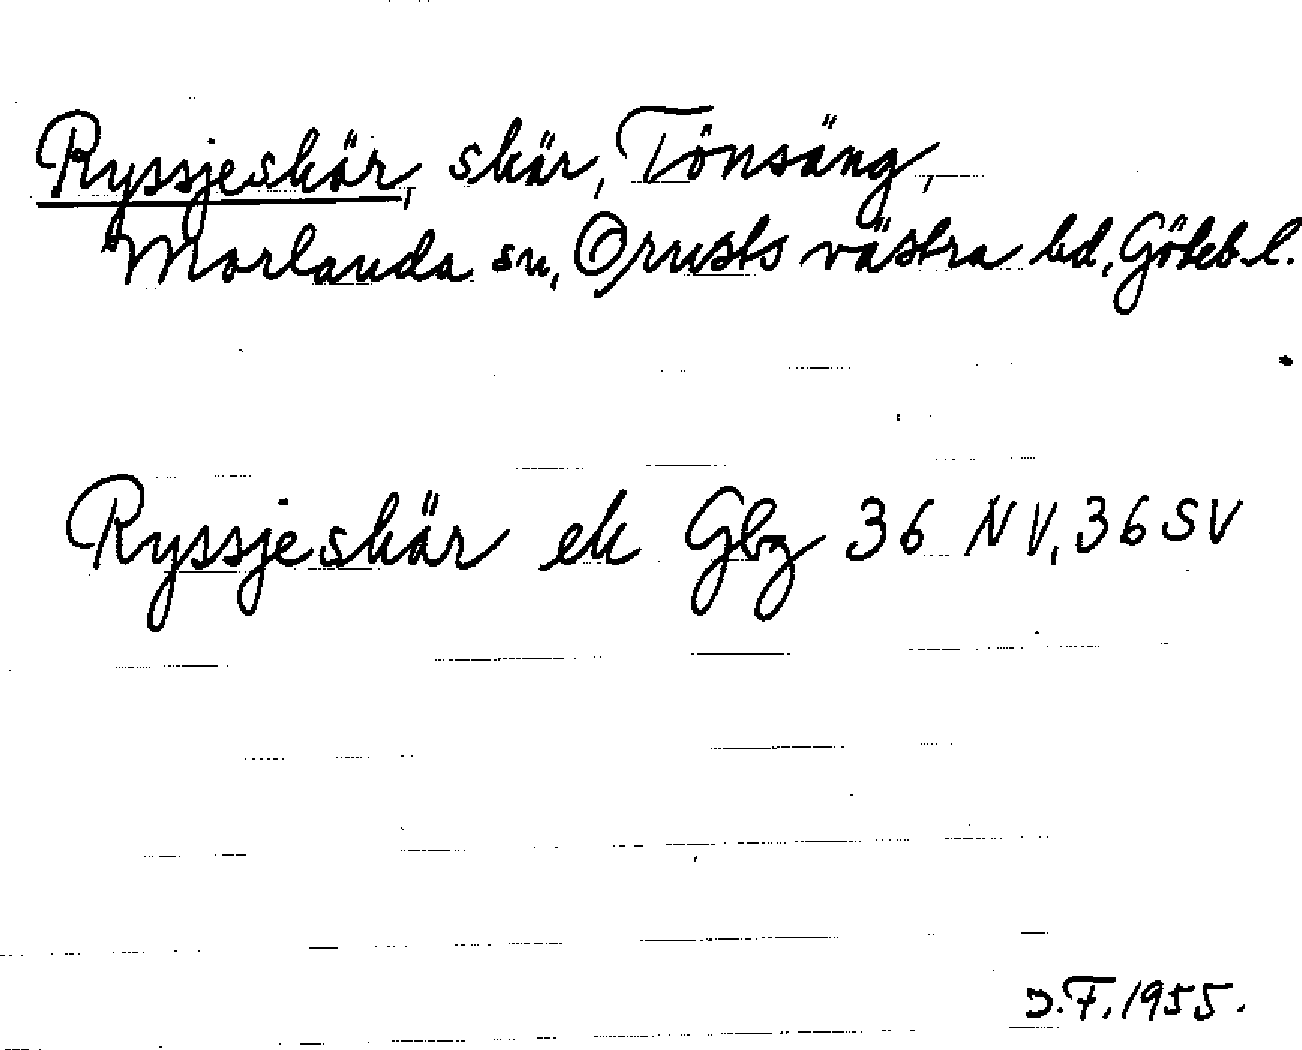 Ryssjeskär, skär, Tönsäng,
Morlanda sn, Orusts västra hd, Göteb. l.
Ryssjeskär ek Gbg 36 NV, 36 SV
J.F. 1955.